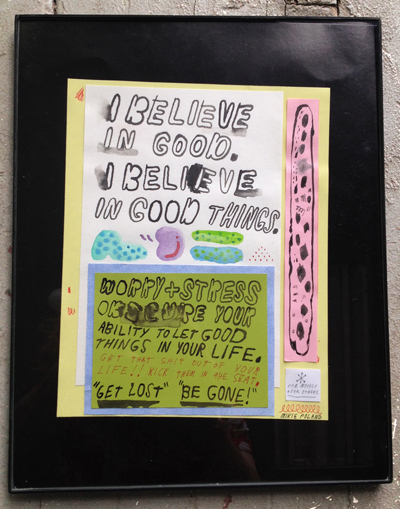 I BELIEVE
IN GOOD.
I BELIEVE
IN GOOD THINGS.
WORRY + STRESS
OBSCURE YOUR
ABILITY TO LET GOOD
THINGS IN YOUR LIFE.
GET THAT SHIT OUT OF YOUR
LIFE!! KICK THEM IN THE SEAT.
"GET LOST" "BE GONE!"
FOR MYSELF
+ FOR OTHERS
MIKIE POLAND